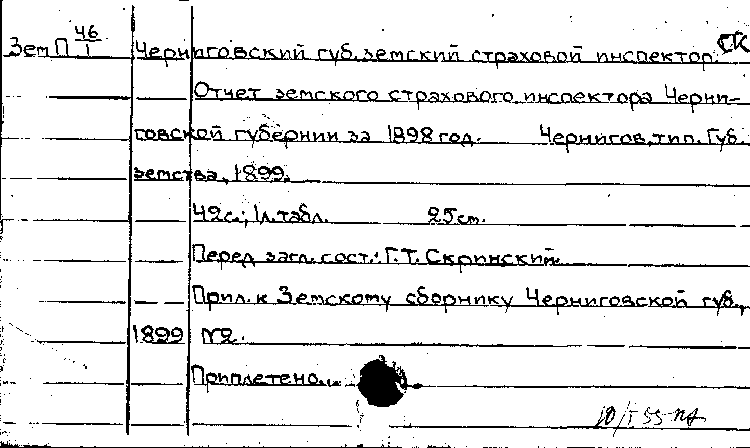 ЗемП 46/1 Черниговский губ. земский страховой инспектор. СК
Отчет земского страхового инспектора Черни-
говской губернии за 1898 год. Чернигов, тип. Губ.
земства, 1899.
42 с.; 1 л. табл. 25 см.
Перед загл. сост.: Г.Т. Скринский.
Прил. к Земскому сборнику Черниговской губ.,
1899 №2.
Приплетено...